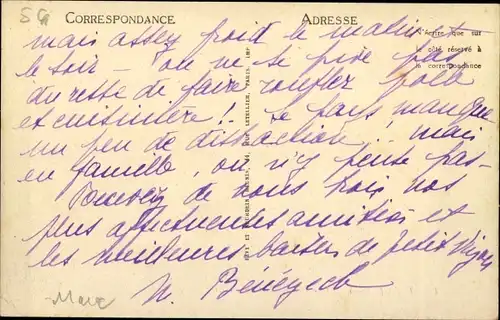 SG
CORRESPONDANCE
ADRESSE
N'écrire que sur
le côté réservé à
la correspondance
mais assez froid le matin et
le soir - on ne se prive pas
du reste de faire ronfler poêle
et cuisinière !. Le pays manque
un peu de distraction !. mais
en famille, on n'y pense pas -
Recevez de nous trois nos
plus affectueuses amitiés et
les meilleures baisers de petit
Bénézech
Marc
LETELLIER, PARIS. IMP.